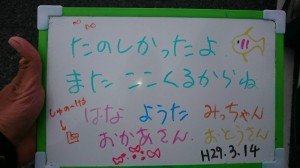 たのしかったよ
また ここくるからね
はな ようた みっちゃん
おかあさん おとうさん
H29.3.14